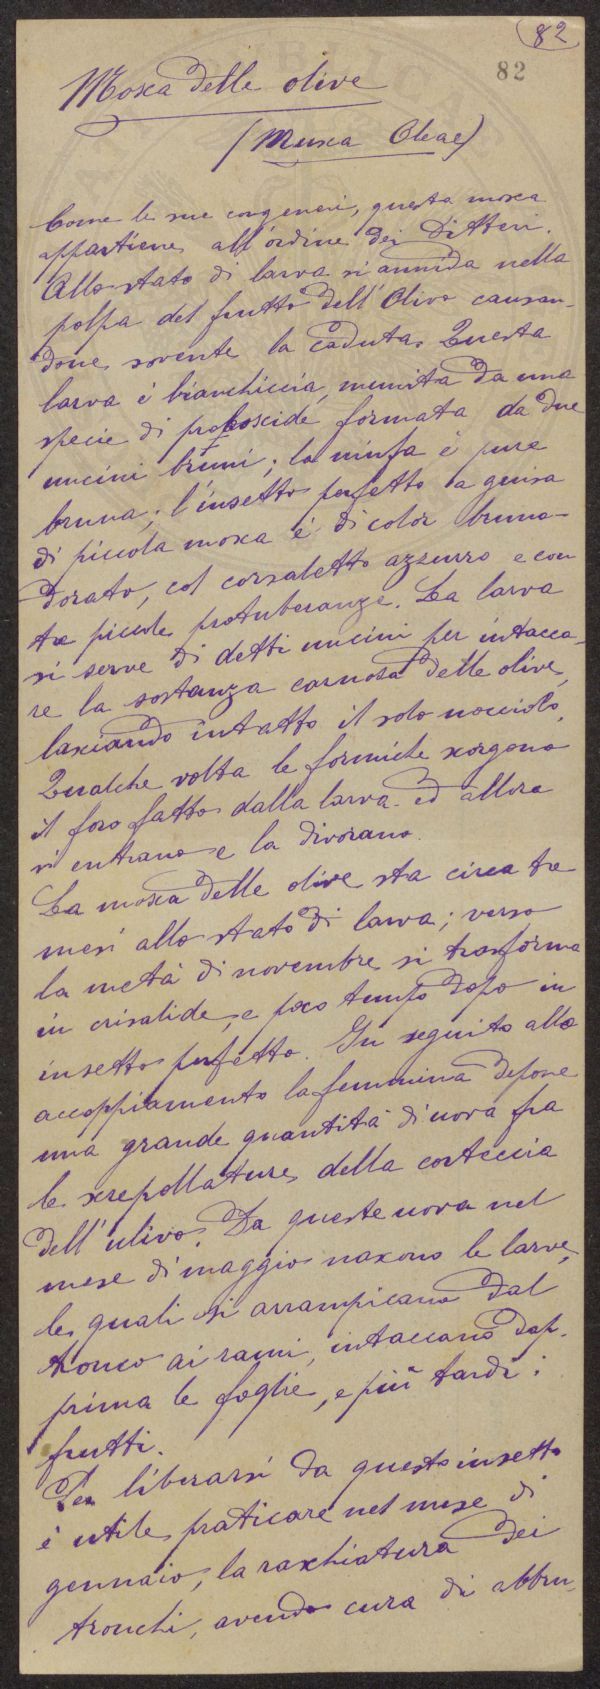 82
82
Mosca delle olive
(Musca Oleae)
Come le sue congeneri, questa mosca
appartiene all'ordine dei Ditteri.
Allo stato di larva si annida nella
polpa del frutto dell'Olivo causan-
done sovente la caduta. Questa
larva è bianchiccia, munita da una
specie di proboscide formata da due
uncini bruni; la ninfa è pure
bruna; l'insetto perfetto a guisa
di piccola mosca è di color bruno-
dorato, col corsaletto azzurro e con
tre piccole protuberanze. La larva
si serve di detti uncini per intacca-
re la sostanza carnosa delle olive,
lasciando intatto il solo nocciolo.
Qualche volta le formiche scorgono
il foro fatto dalla larva ed allora
vi entrano e la divorano.
La mosca delle olive sta circa tre
mesi allo stato di larva; verso
la metà di novembre si trasforma
in crisalide, e poco tempo dopo in
insetto perfetto. In seguito allo
accoppiamento la femmina depone
una grande quantità di uova fra
le screpolature della corteccia
dell'ulivo. Da queste uova nel
mese di maggio nascono le larve,
le quali si arrampicano dal
tronco ai rami, intaccano dap-
prima le foglie, e più tardi i
frutti.
Per liberarsi da questo insetto
è utile praticare nel mese di
gennaio, la raschiatura dei
tronchi, avendo cura di abbru-